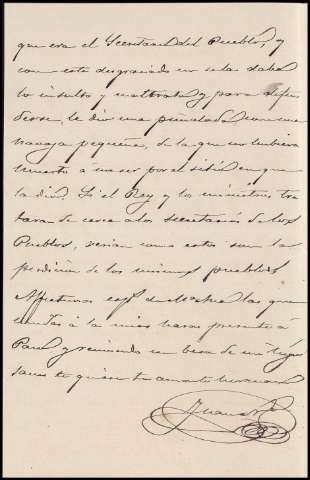 que era el Secretario del Pueblo, y
con este desgraciado no se le daba
lo insultó y maltrató y para defen
derse, le dio una puñalada con una
navaja pequeña, de la que no hubiera
muerto a no ser por el sitio en que
la dio. Si el Rey y los ministros tra
taran de cerca a los secretarios de los
Pueblos, verian como estos son la
perdicion de los mismos pueblos
Afectuosas esp de Madre las que
unidas á la mias haras presente á
Paul y reciviendo un beso de mi
te quiere tu amante hermano
Juan